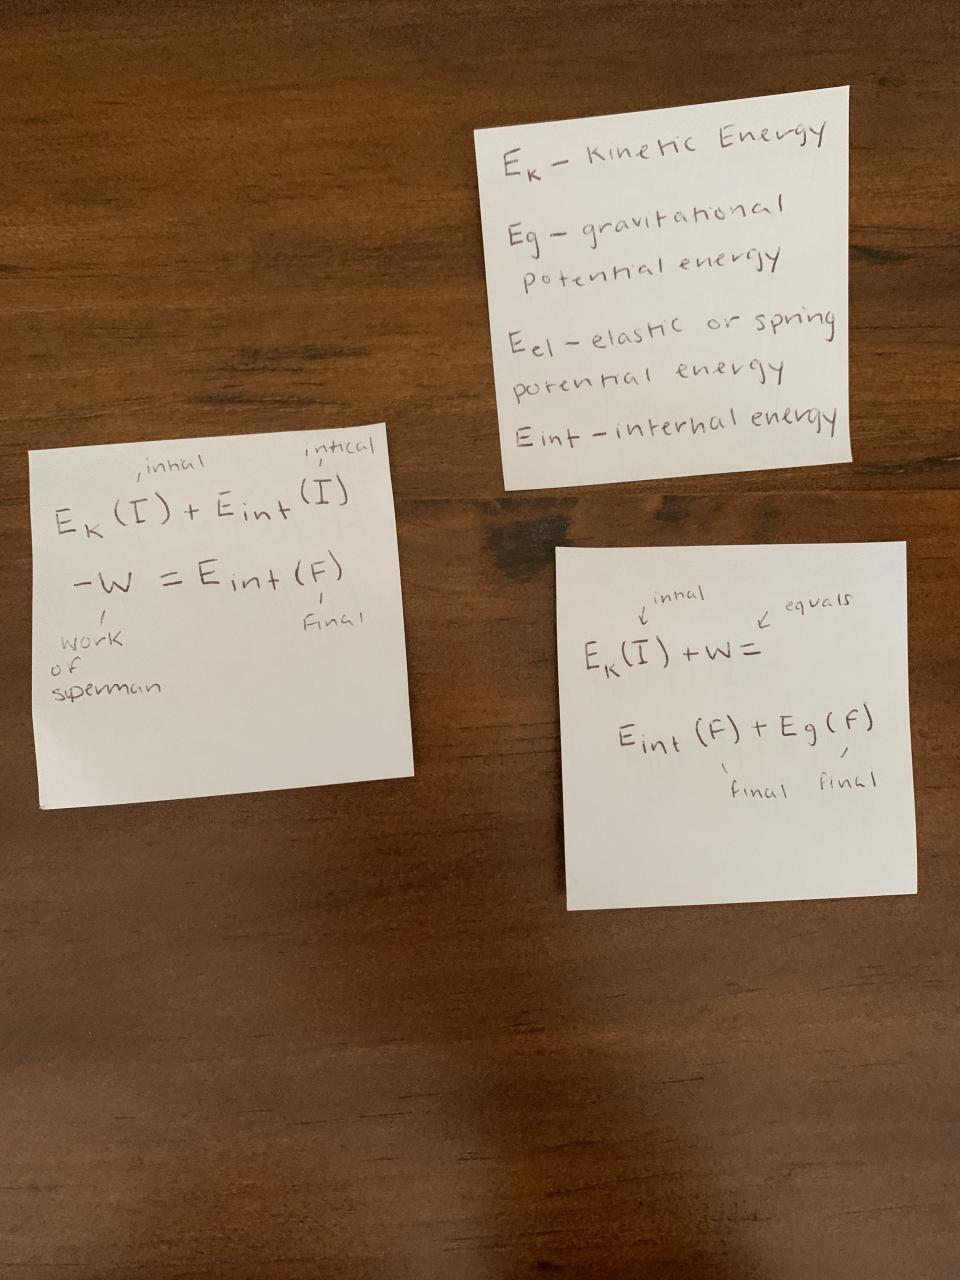 Ek - Kinetic Energy
Eg - gravitational
potential energy
Eel - elastic or spring
potential energy
Eint - internal energy
initial intical
Ek (I) + Eint (I)
-W = Eint (F)
work Final
of
superman
initial equals
Ek(I) + W =
Eint (F) + Eg (F)
final final